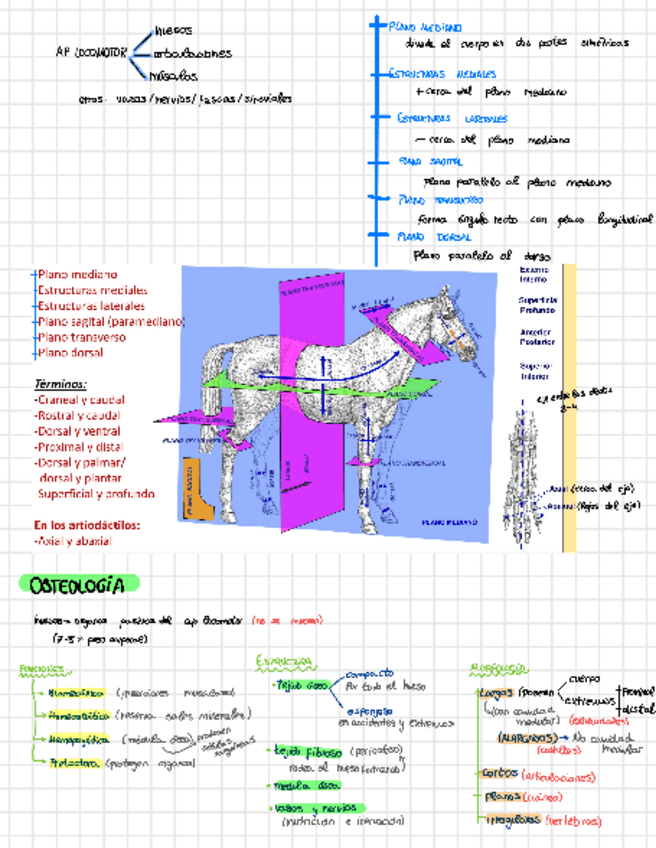 huesos
AP LOCOMOTOR
articulaciones
músculos
otros: vasos/nervios/fascias/sinoviales
PLANO MEDIANO
divide el cuerpo en dos partes simétricas
ESTRUCTURAS MEDIALES
+ cerca del plano mediano
ESTRUCTURAS LATERALES
- cerca del plano mediano
PLANO SAGITAL
plano paralelo al plano mediano
PLANO TRANSVERSO
forma ángulo recto con plano longitudinal
PLANO DORSAL
Plano paralelo al dorso
-Plano mediano
-Estructuras mediales
-Estructuras laterales
-Plano sagital (paramediano)
-Plano transverso
-Plano dorsal
Términos:
-Craneal y caudal
-Rostral y caudal
-Dorsal y ventral
-Proximal y distal
-Dorsal y palmar/
dorsal y plantar
-Superficial y profundo
En los artiodáctilos:
-Axial y abaxial
PLANO TRANSVERSAL
PLANO DORSAL
PLANO TRANSVERSAL
PLANO MEDIANO
Externo
Interno
Superficial
Profundo
Anterior
Posterior
Superior
Inferior
3-4
Axial (cerca del eje)
Abaxial (lejos del eje)
OSTEOLOGÍA
huesos → órganos pasivos del ap locomotor (no se mueven)
(7-8% peso corporal)
FUNCIONES
Biomecánica (inserciones musculares)
Homeostática (reserva sales minerales)
Hemopoyética (médula ósea) producen células sanguíneas
Protectora (protegen órganos)
ESTRUCTURA
Tejido óseo
compacto
Por todo el hueso
esponjoso
en accidentes y extremos
tejido fibroso (periostio)
rodea al hueso
médula ósea
vasos y nervios
(nutrición e inervación)
MORFOLOGÍA
Largos (poseen
cuerpo
extremos
proximal
distal
(con cavidad medular) (extremidades)
(ALARGADOS) → No cavidad medular
(costillas)
cortos (articulaciones)
planos (cráneo)
irregulares (vértebras)